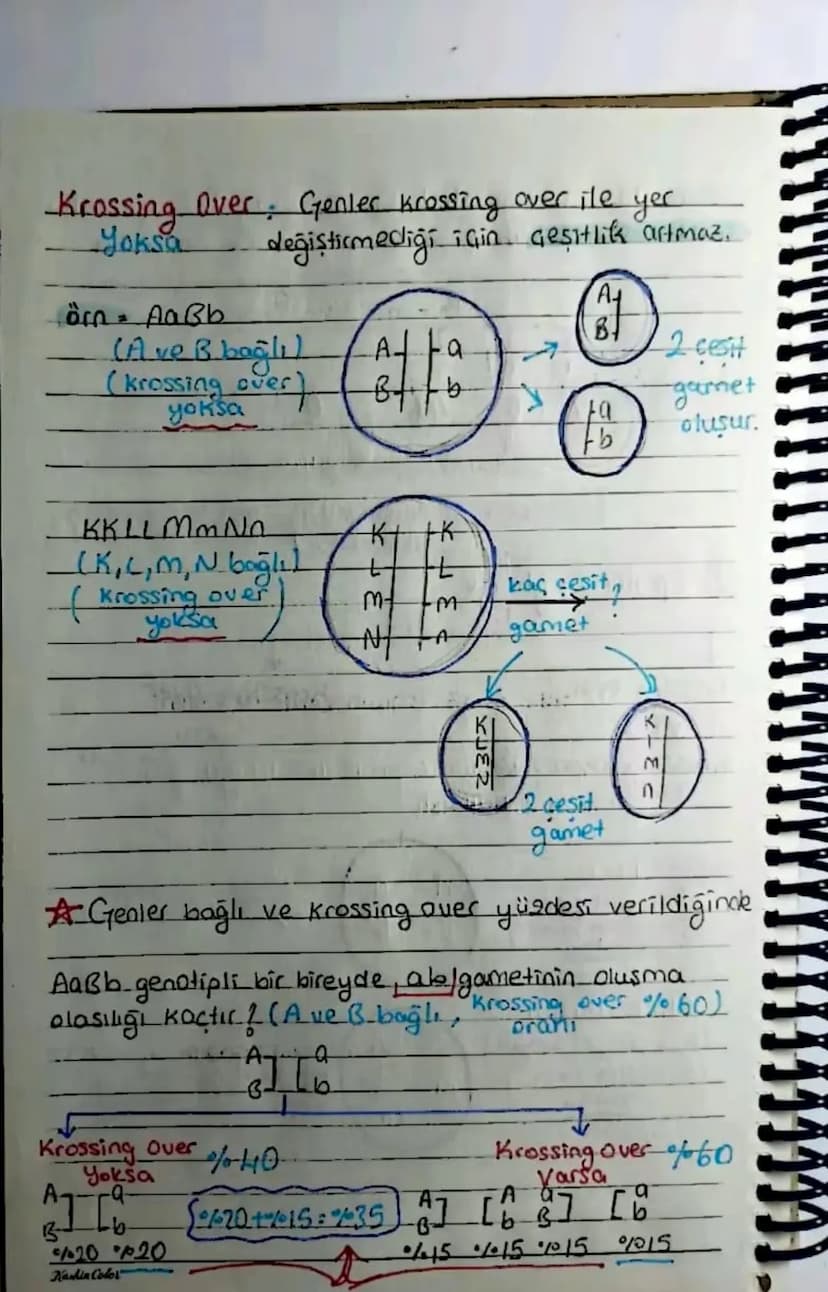 Krossing Over : Genler krossing over ile yer
Yoksa değiştirmediği için çeşitlik artmaz.
örn = AaBb
(A ve B bağlı)
(krossing over)
yoksa
A a
B b
A
B
a
b
2 çeşit
gamet
oluşur.
KKLLMmNn
(K, L, M, N bağlı)
(krossing over)
yoksa
K K
L L
M m
N n
kaç çeşit ?
gamet
K
L
M
N
K
L
m
n
2 çeşit
gamet
☆ Genler bağlı ve krossing over yüzdesi verildiğinde
AaBb genotipli bir bireyde, ab gametinin oluşma
olasılığı kaçtır? (A ve B bağlı, Krossing over %60)
oranı
A a
B b
Krossing Over %40
Yoksa
Krossing over %60
Varsa
A a
B b
%20 %20
%20+%15=%35
A A a a
B b B b
%15 %15 %15 %15